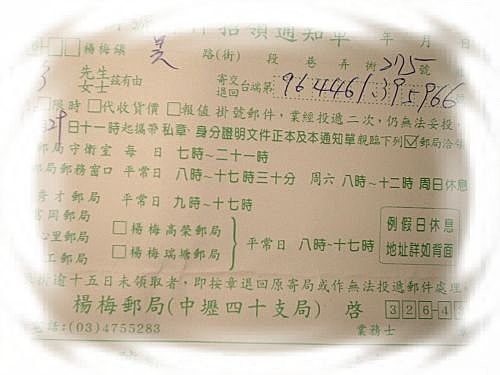 件招領通知單 年 月 日
楊梅鎮 路(街) 段 巷 弄 275號
先生 女士 茲有由 寄交 退回 台端第
限時 □代收貨價 □報值 掛號郵件,業經投遞二次,仍無法妥投,
29日十一時起攜帶 私章、身分證明文件正本及本通知單親臨下列☑郵局洽領
郵局守衛室 每 日 七時~二十一時
郵局郵務窗口 平常日 八時~十七時三十分 周六 八時~十二時 周日休息
秀才郵局 平常日 九時~十七時
富岡郵局 □楊梅高榮郵局
心里郵局 □楊梅瑞塘郵局 平常日 八時~十七時
工郵局
例假日休息
地址詳如背面
逾十五日未領取者,即按章退回原寄局或作無法投遞郵件處理
楊梅郵局(中壢四十支局) 啓 326-4
電話:(03)4755283 業務士